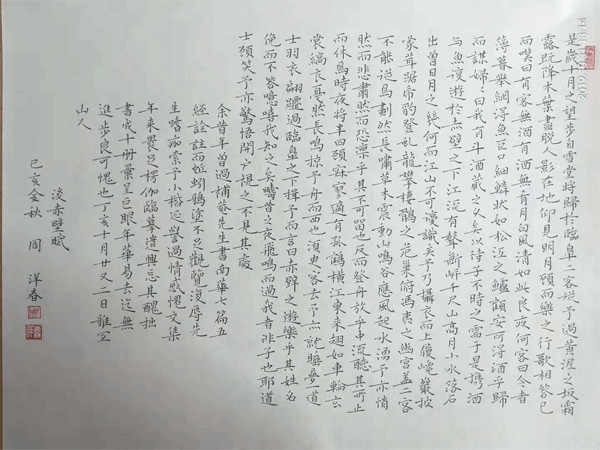 是歲十月之望步自雪堂將歸於臨臯二客從予過黃泥之坂霜
露既降木葉盡脫人影在地仰見明月顧而樂之行歌相答已
而嘆曰有客無酒有酒無肴月白風清如此良夜何客曰今者
薄暮舉網得魚巨口細鱗狀如松江之鱸顧安所得酒乎歸
而謀婦婦曰我有斗酒藏之久矣以待子不時之需于是攜酒
與魚復遊於赤壁之下江流有聲斷岸千尺山高月小水落石
出曾日月之幾何而江山不可復識矣予乃攝衣而上履巉巖披
蒙茸踞虎豹登虬龍攀棲鶻之危巢俯馮夷之幽宮蓋二客
不能從焉劃然長嘯草木震動山鳴谷應風起水湧予亦悄
然而悲肅然而恐凜乎其不可留也反而登舟放乎中流聽其所止
而休焉時夜將半四顧寂寥適有孤鶴橫江東來翅如車輪玄
裳縞衣戛然長鳴掠予舟而西也須臾客去予亦就睡夢一道
士羽衣翩躚過臨臯之下揖予而言曰赤壁之遊樂乎其姓名
俛而不答噫嘻我知之矣疇昔之夜飛鳴而過我者非子也耶道
士顧笑予亦驚悟開戶視之不見其處
余昔年曾過補菴先生書南華七篇五
經註註而蚯蚓鴉塗不足觀覽沒辱先
生嗜痂索予小楷延譽過情感愧交集
年來畏足樓伽臨摹遣興忘其醜拙
書成十冊彙呈巨眼年華易去迄無
進步良可愧也丁亥十月廿又二日雅宜
山人
後赤壁賦
己亥金秋 周洋春